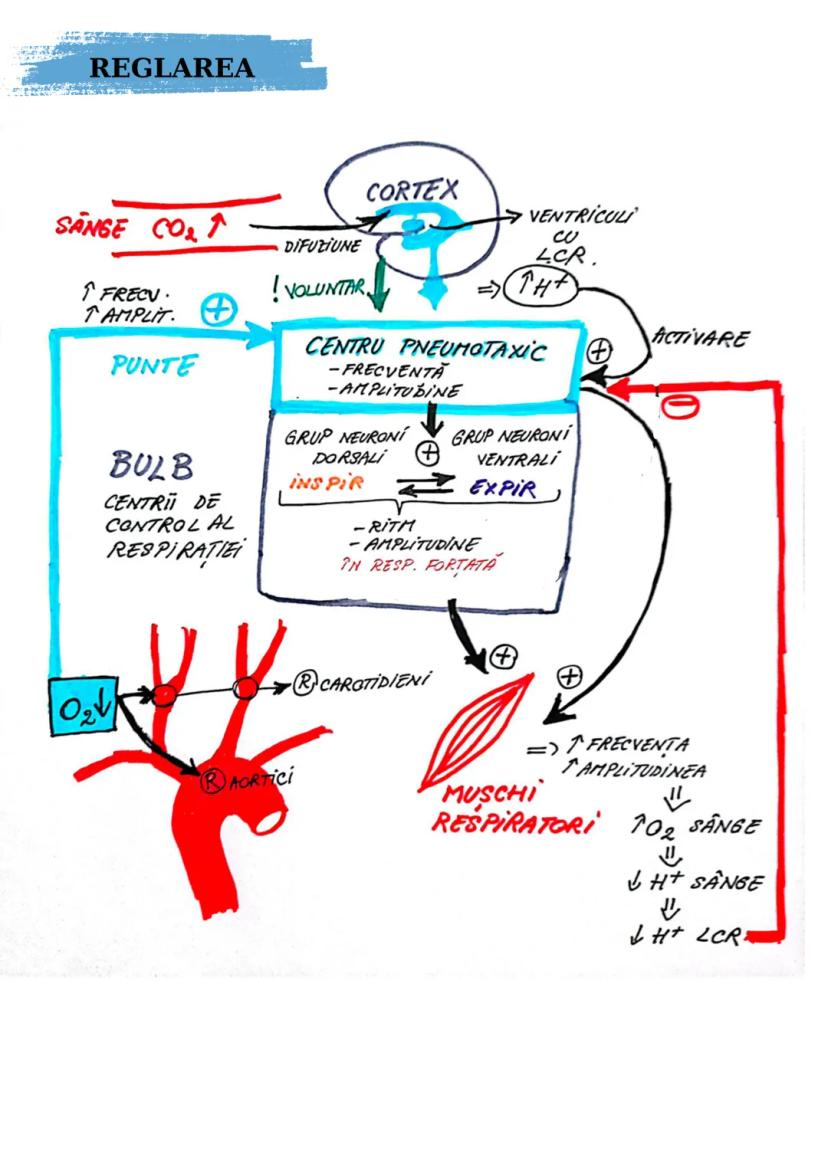 REGLAREA
CORTEX
SÂNGE CO₂ ↑
DIFUZIUNE
VENTRICULI
CU
LCR.
! VOLUNTAR
⇒ ↑H⁺
↑ FRECV.
↑ AMPLIT.
+
ACTIVARE
+
PUNTE
CENTRU PNEUMOTAXIC
- FRECVENTĂ
- AMPLITUDINE
−
GRUP NEURONI
DORSALI
+
GRUP NEURONI
VENTRALI
INSPIR
EXPIR
BULB
CENTRII DE
CONTROL AL
RESPIRAȚIEI
- RITM
- AMPLITUDINE
ÎN RESP. FORȚATĂ
+
+
O₂↓
R CAROTIDIENI
R AORTICI
MUȘCHI
RESPIRATORI
⇒ ↑ FRECVENȚA
↑ AMPLITUDINEA
⇓
↑O₂ SÂNGE
⇓
↓ H⁺ SÂNGE
⇓
↓ H⁺ LCR